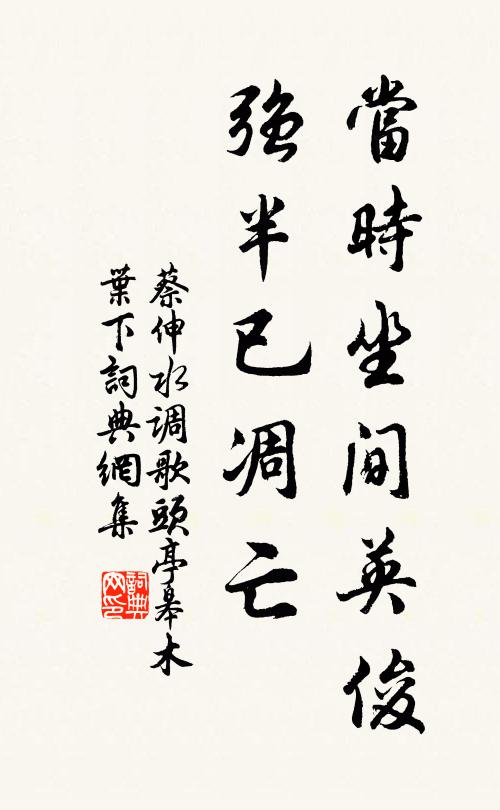 當時坐間英俊
強半已凋亡
蔡伸水調歌頭亭皋木
葉下詞典網集
詞典网印